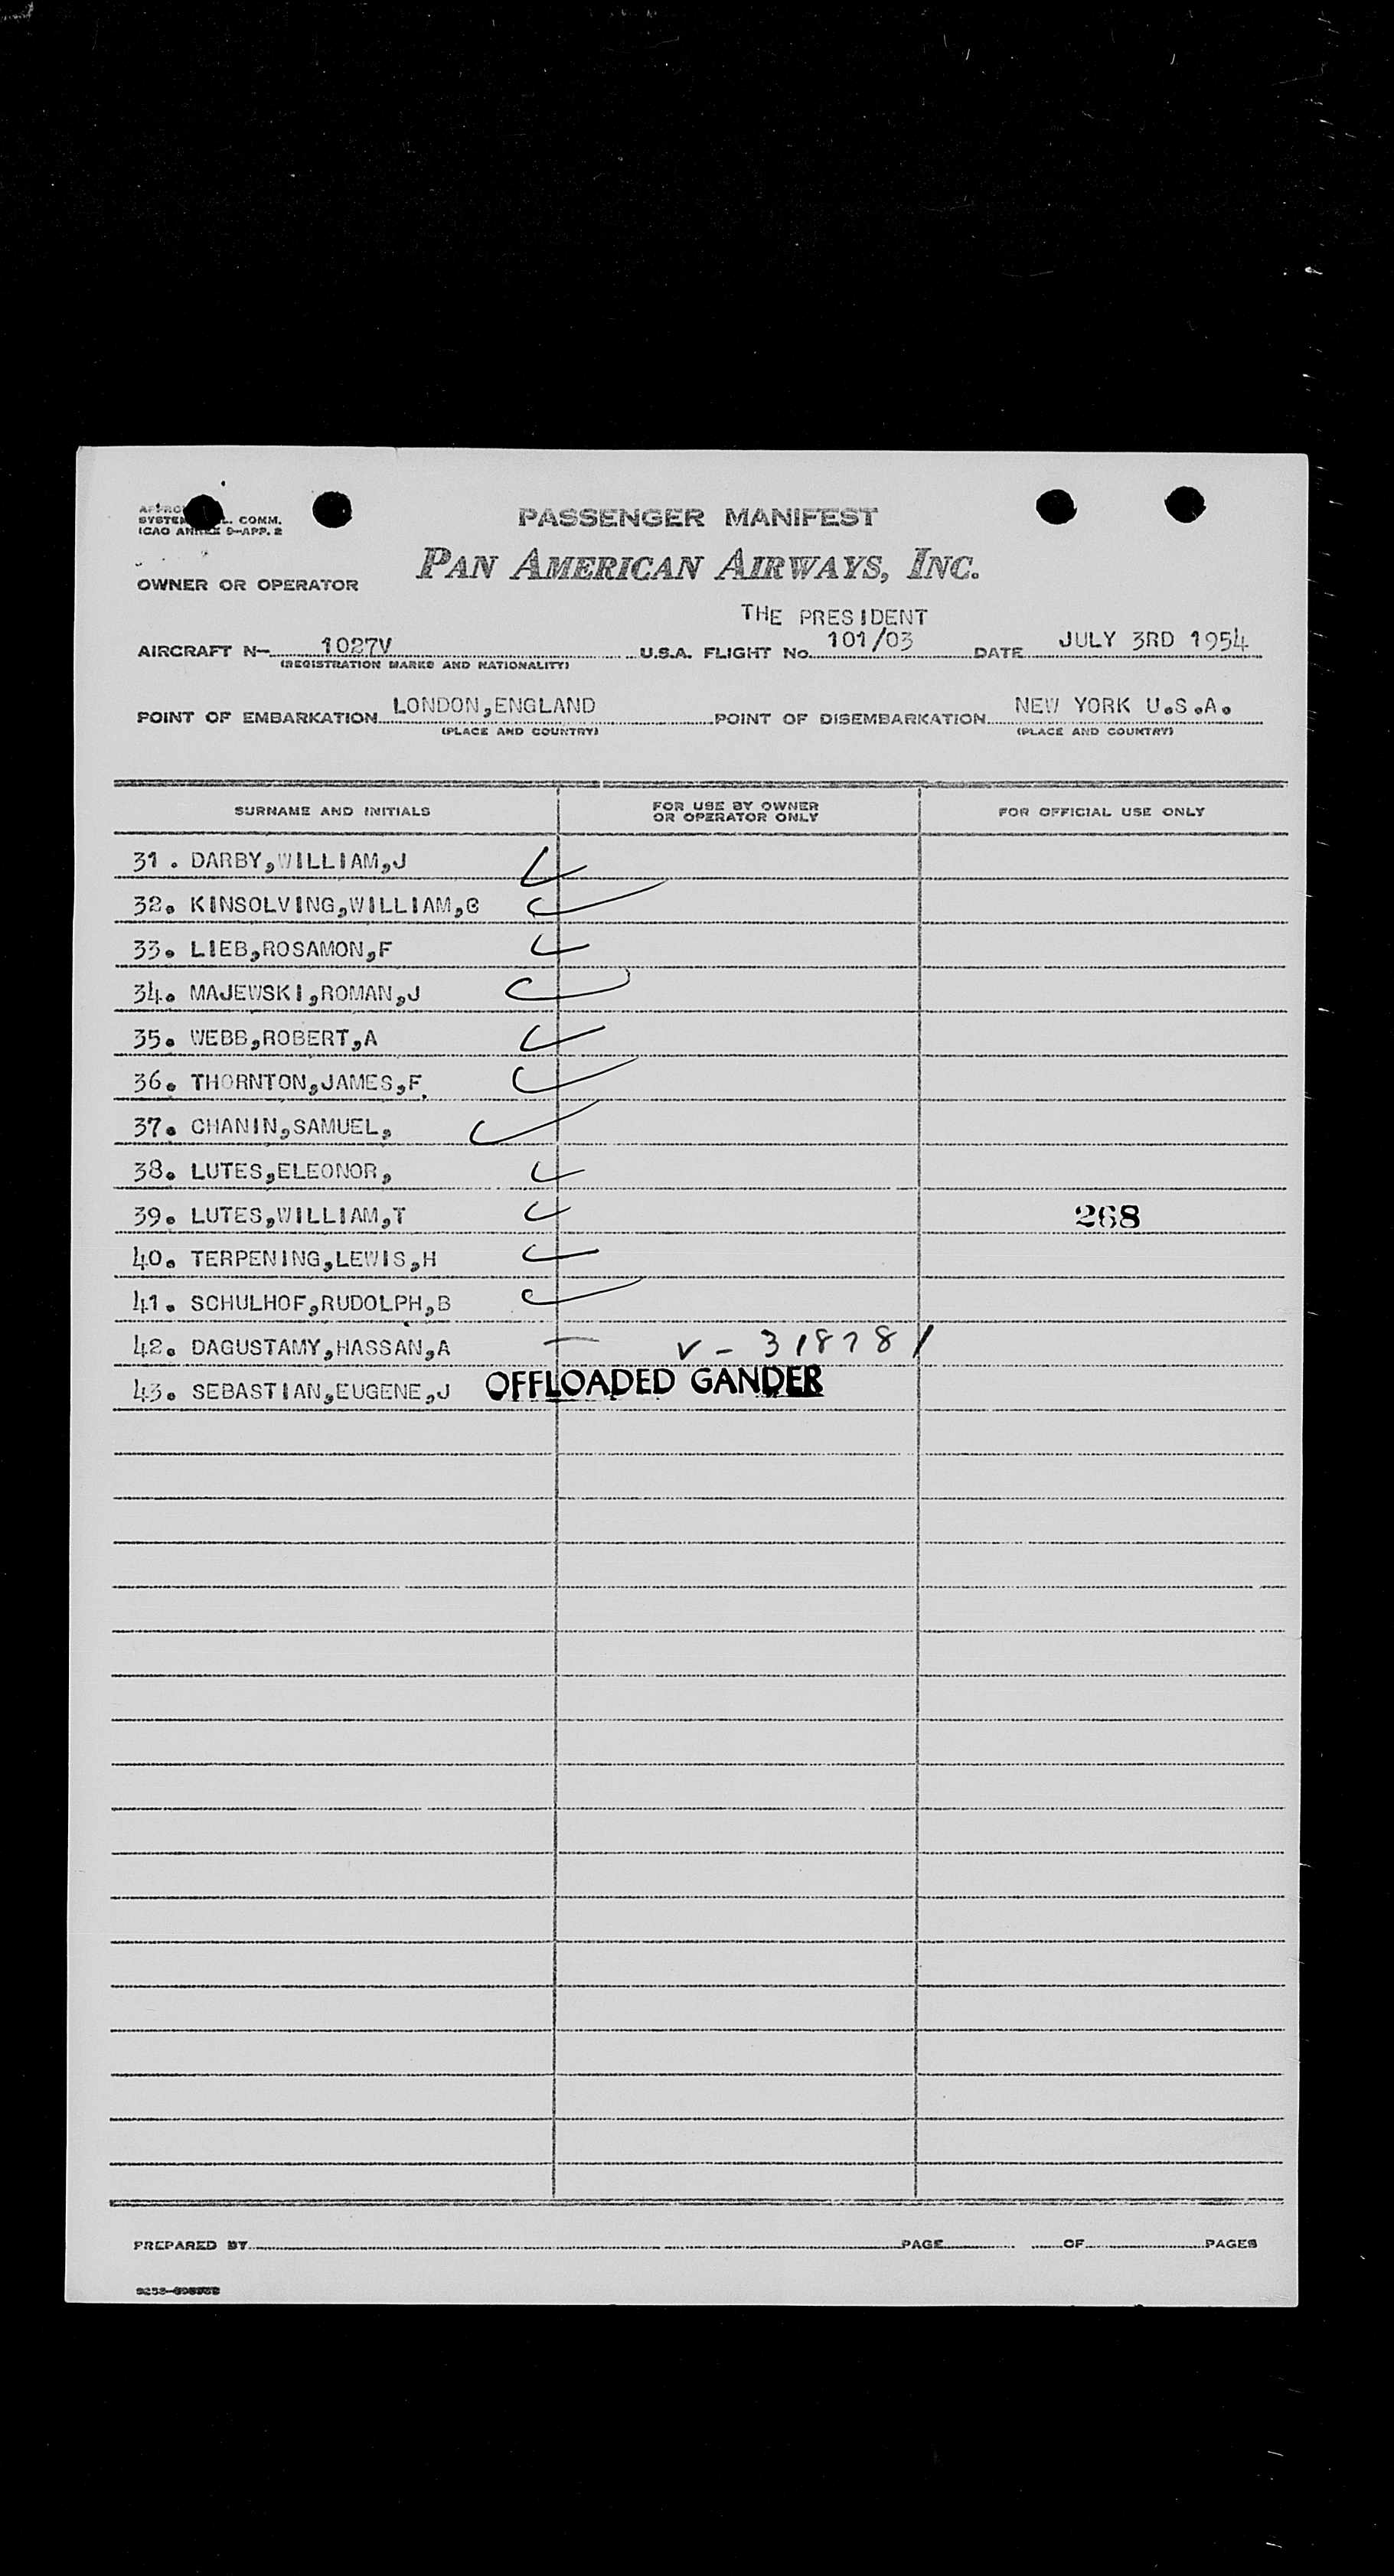 SYSTEM L. COMM.
ICAO ANNEX 9-APP. 2
PASSENGER MANIFEST
PAN AMERICAN AIRWAYS, INC.
OWNER OR OPERATOR
THE PRESIDENT
AIRCRAFT N- 1027V U.S.A. FLIGHT No. 101/03 DATE JULY 3RD 1954
(REGISTRATION MARKS AND NATIONALITY)
POINT OF EMBARKATION LONDON,ENGLAND POINT OF DISEMBARKATION NEW YORK U.S.A.
(PLACE AND COUNTRY) (PLACE AND COUNTRY)
SURNAME AND INITIALS FOR USE BY OWNER OR OPERATOR ONLY FOR OFFICIAL USE ONLY
31. DARBY,WILLIAM,J
32. KINSOLVING,WILLIAM,C
33. LIEB,ROSAMON,F
34. MAJEWSKI,ROMAN,J
35. WEBB,ROBERT,A
36. THORNTON,JAMES,F.
37. CHANIN,SAMUEL,
38. LUTES,ELEONOR,
39. LUTES,WILLIAM,T 268
40. TERPENING,LEWIS,H
41. SCHULHOF,RUDOLPH,B
42. DAGUSTAMY,HASSAN,A V-318781
43. SEBASTIAN,EUGENE,J OFFLOADED GANDER
PREPARED BY PAGE OF PAGES